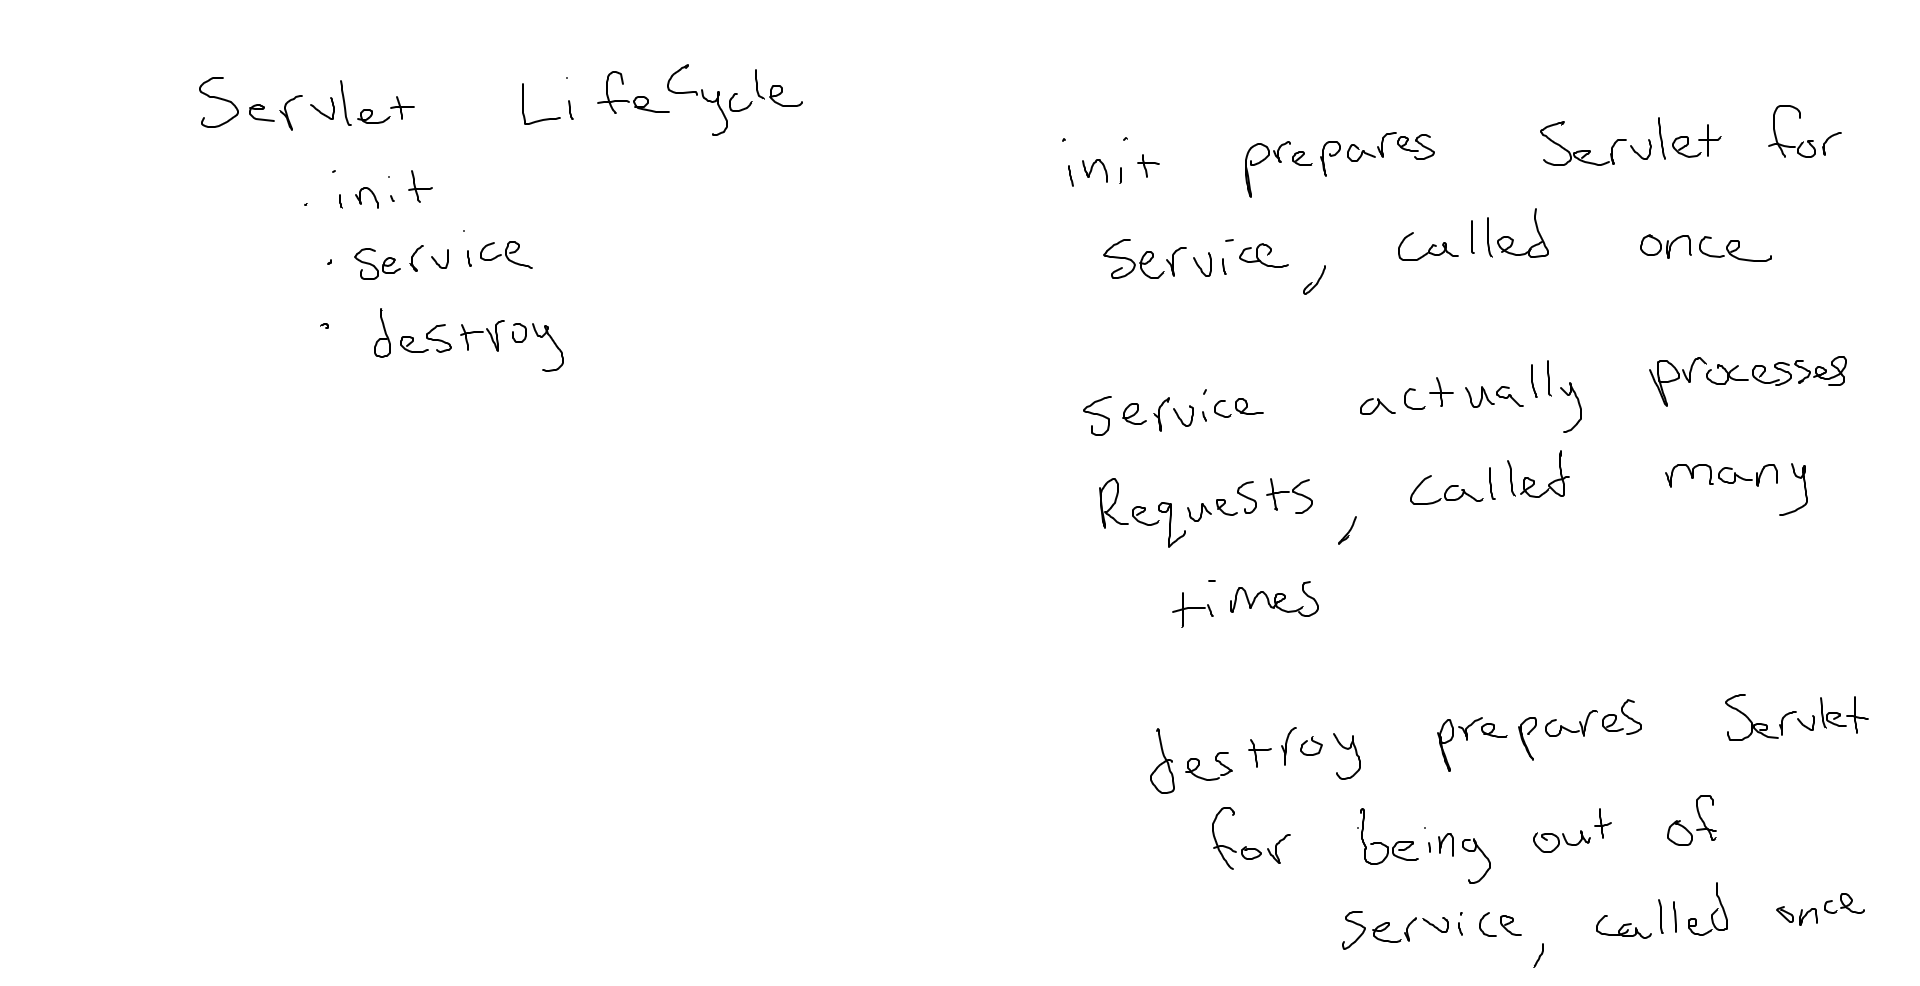 Servlet LifeCycle
· init
· service
· destroy
init prepares Servlet for
service, called once
service actually processes
Requests, called many
times
destroy prepares Servlet
for being out of
service, called once